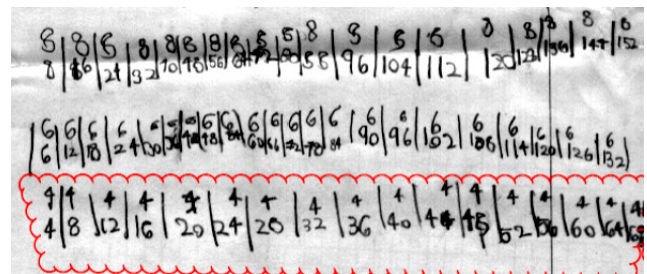 8 8 8 8 8 8 8 8 8 8 8 8 8 8 8 8 8 8 8
8 16 24 32 40 48 56 64 72 80 88 96 104 112 120 128 136 144 152
6 6 6 6 6 6 6 6 6 6 6 6 6 6 6 6 6 6 6
6 12 18 24 30 36 48 60 66 72 78 84 90 96 102 108 114 120 126 132
4 4 4 4 4 4 4 4 4 4 4 4 4 4 4 4 4
4 8 12 16 20 24 28 32 36 40 44 48 52 56 60 64